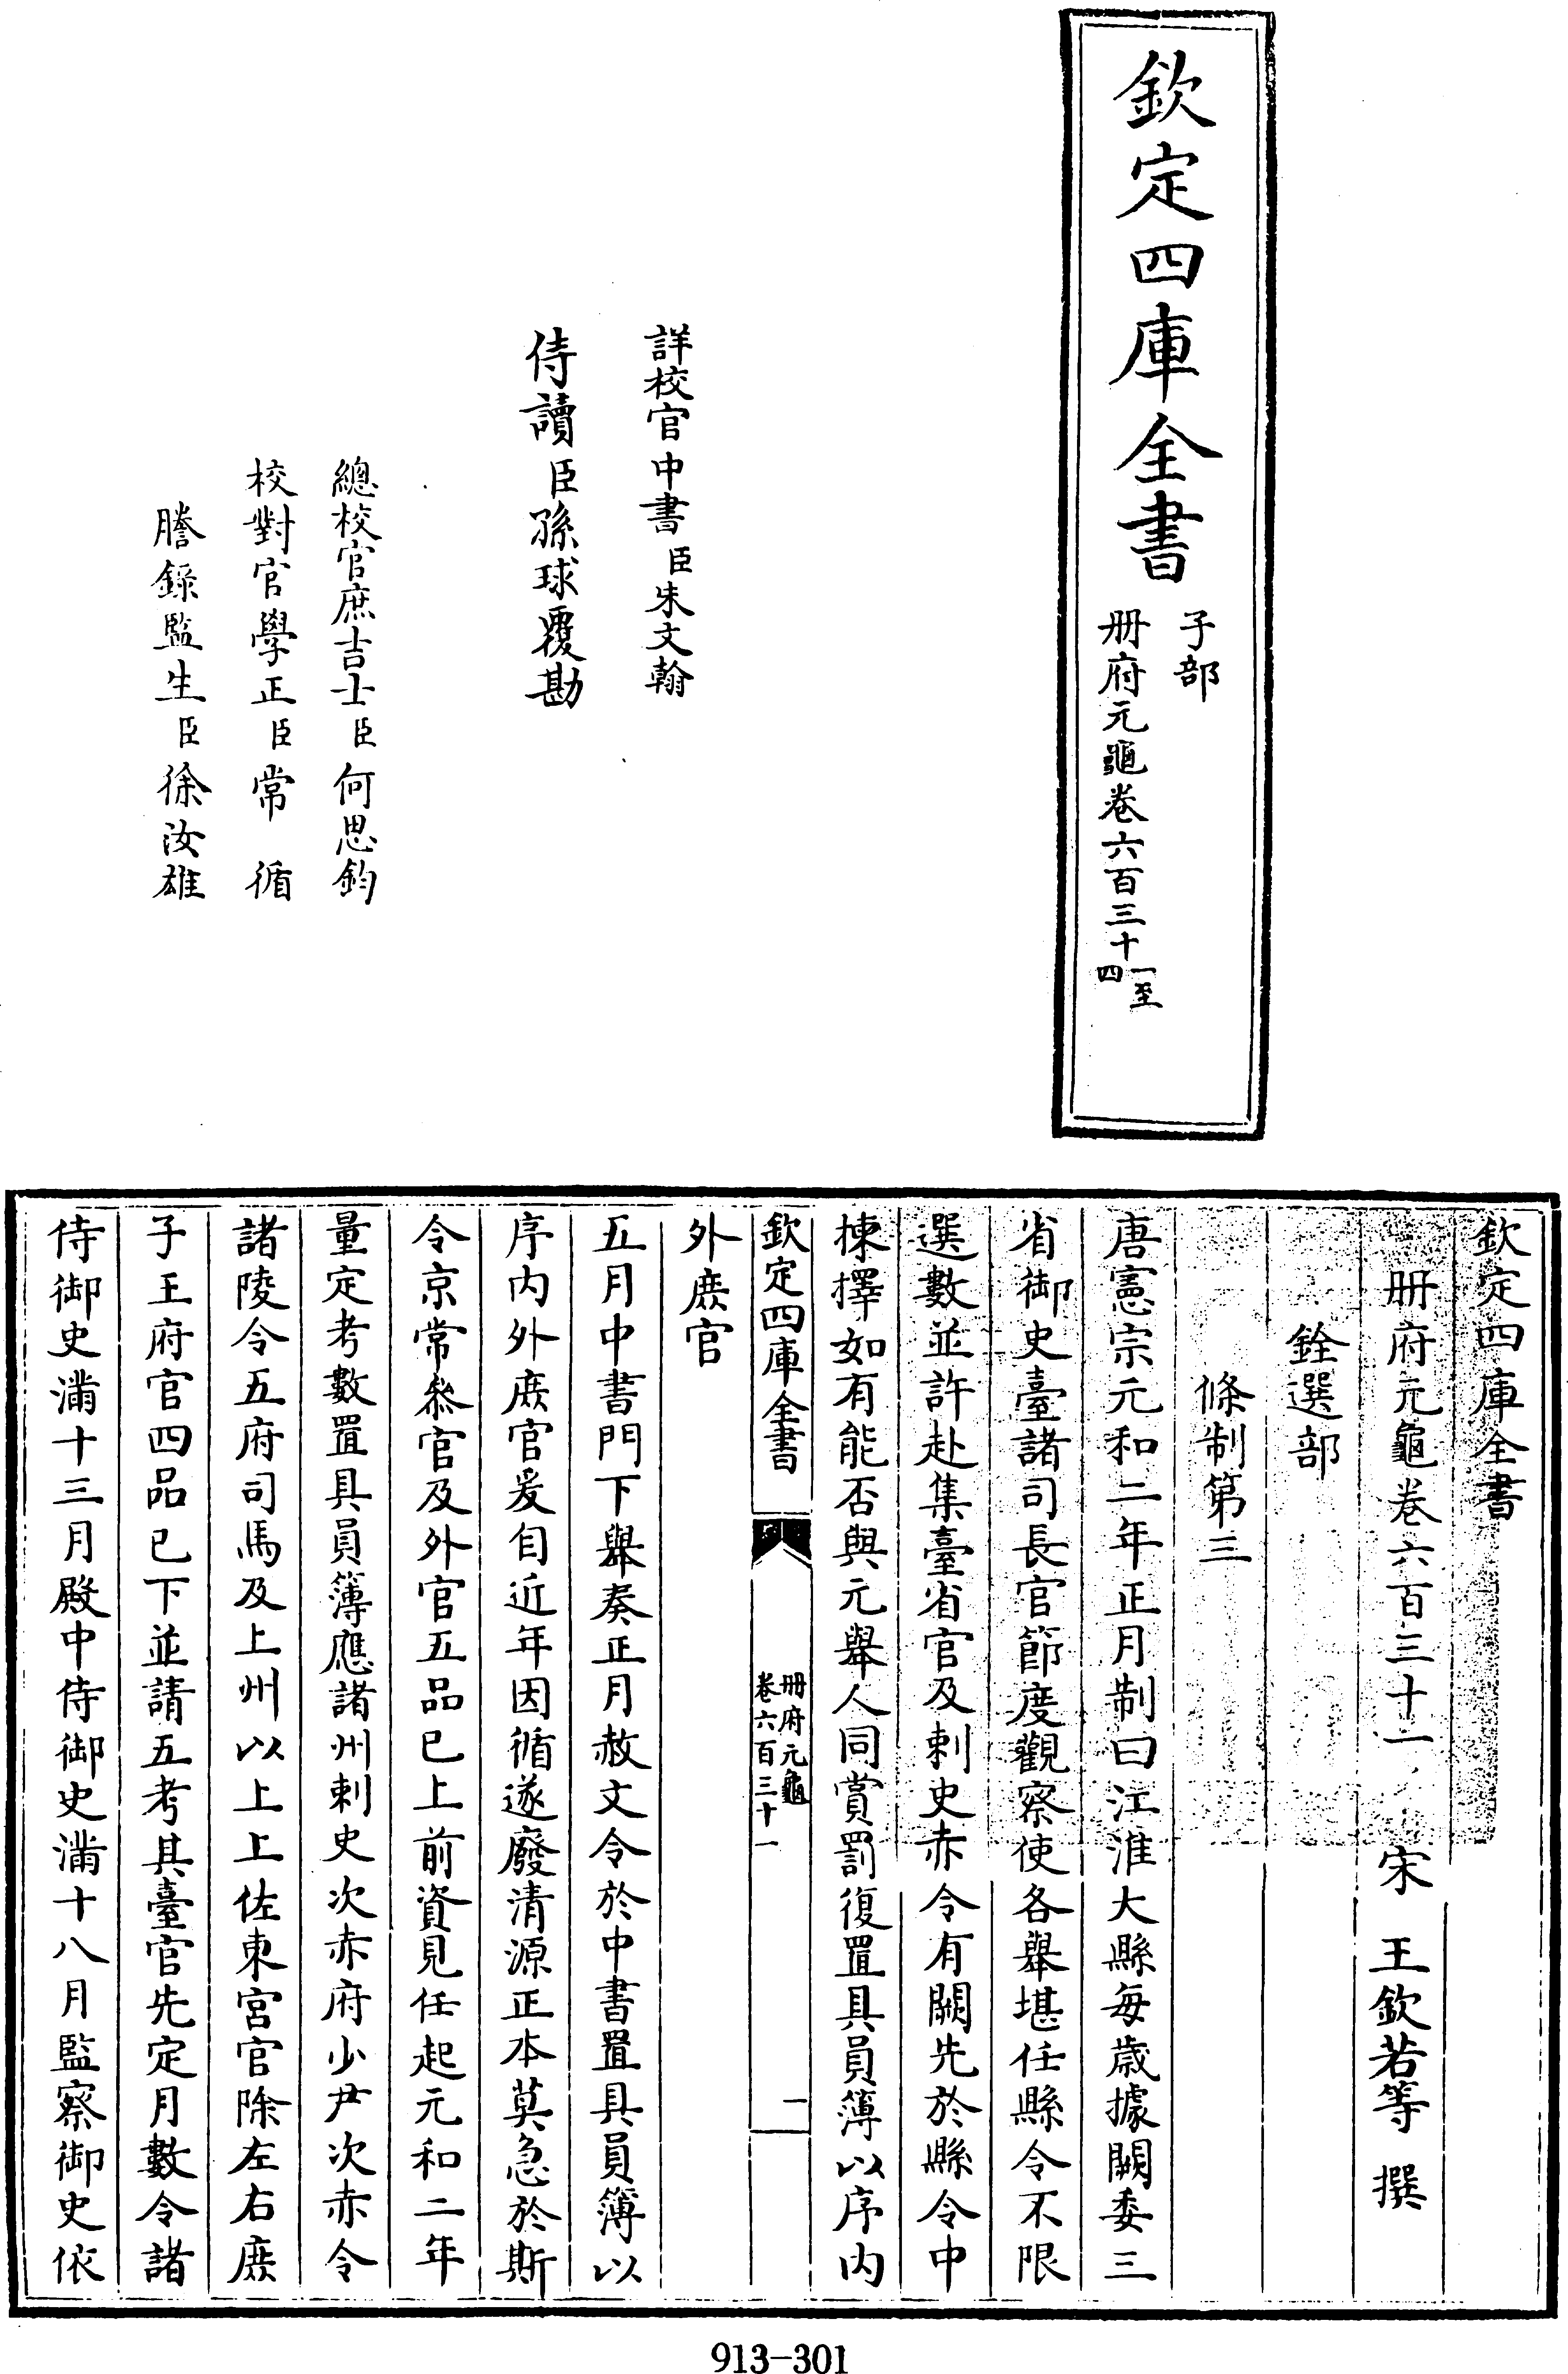 欽定四庫全書
子部
册府元龜卷六百三十一至四
詳校官中書臣朱文翰
侍讀臣孫球覆勘
總校官庶吉士臣何思鈞
校對官學正臣常循
謄錄監生臣徐汝雄
欽定四庫全書
册府元龜卷六百三十一 宋 王欽若等 撰
銓選部
條制第三
唐憲宗元和二年正月制曰江淮大縣每歲據闕委三
省御史臺諸司長官節度觀察使各舉堪任縣令不限
選數並許赴集臺省官及刺史赤令有闕先於縣令中
揀擇如有能否與元舉人同賞罰復置具員簿以序内
欽定四庫全書
册府元龜
卷六百三十一
一
外庶官
五月中書門下舉奏正月赦文令於中書置具員簿以
序内外庶官爰自近年因循遂廢清源正本莫急於斯
令京常叅官及外官五品已上前資見任起元和二年
量定考數置具員簿應諸州刺史次赤府少尹次赤令
諸陵令五府司馬及上州以上上佐東宫官除左右庶
子王府官四品已下並請五考其臺官先定月數令諸
侍御史滿十三月殿中侍御史滿十八月監察御史依
913-301